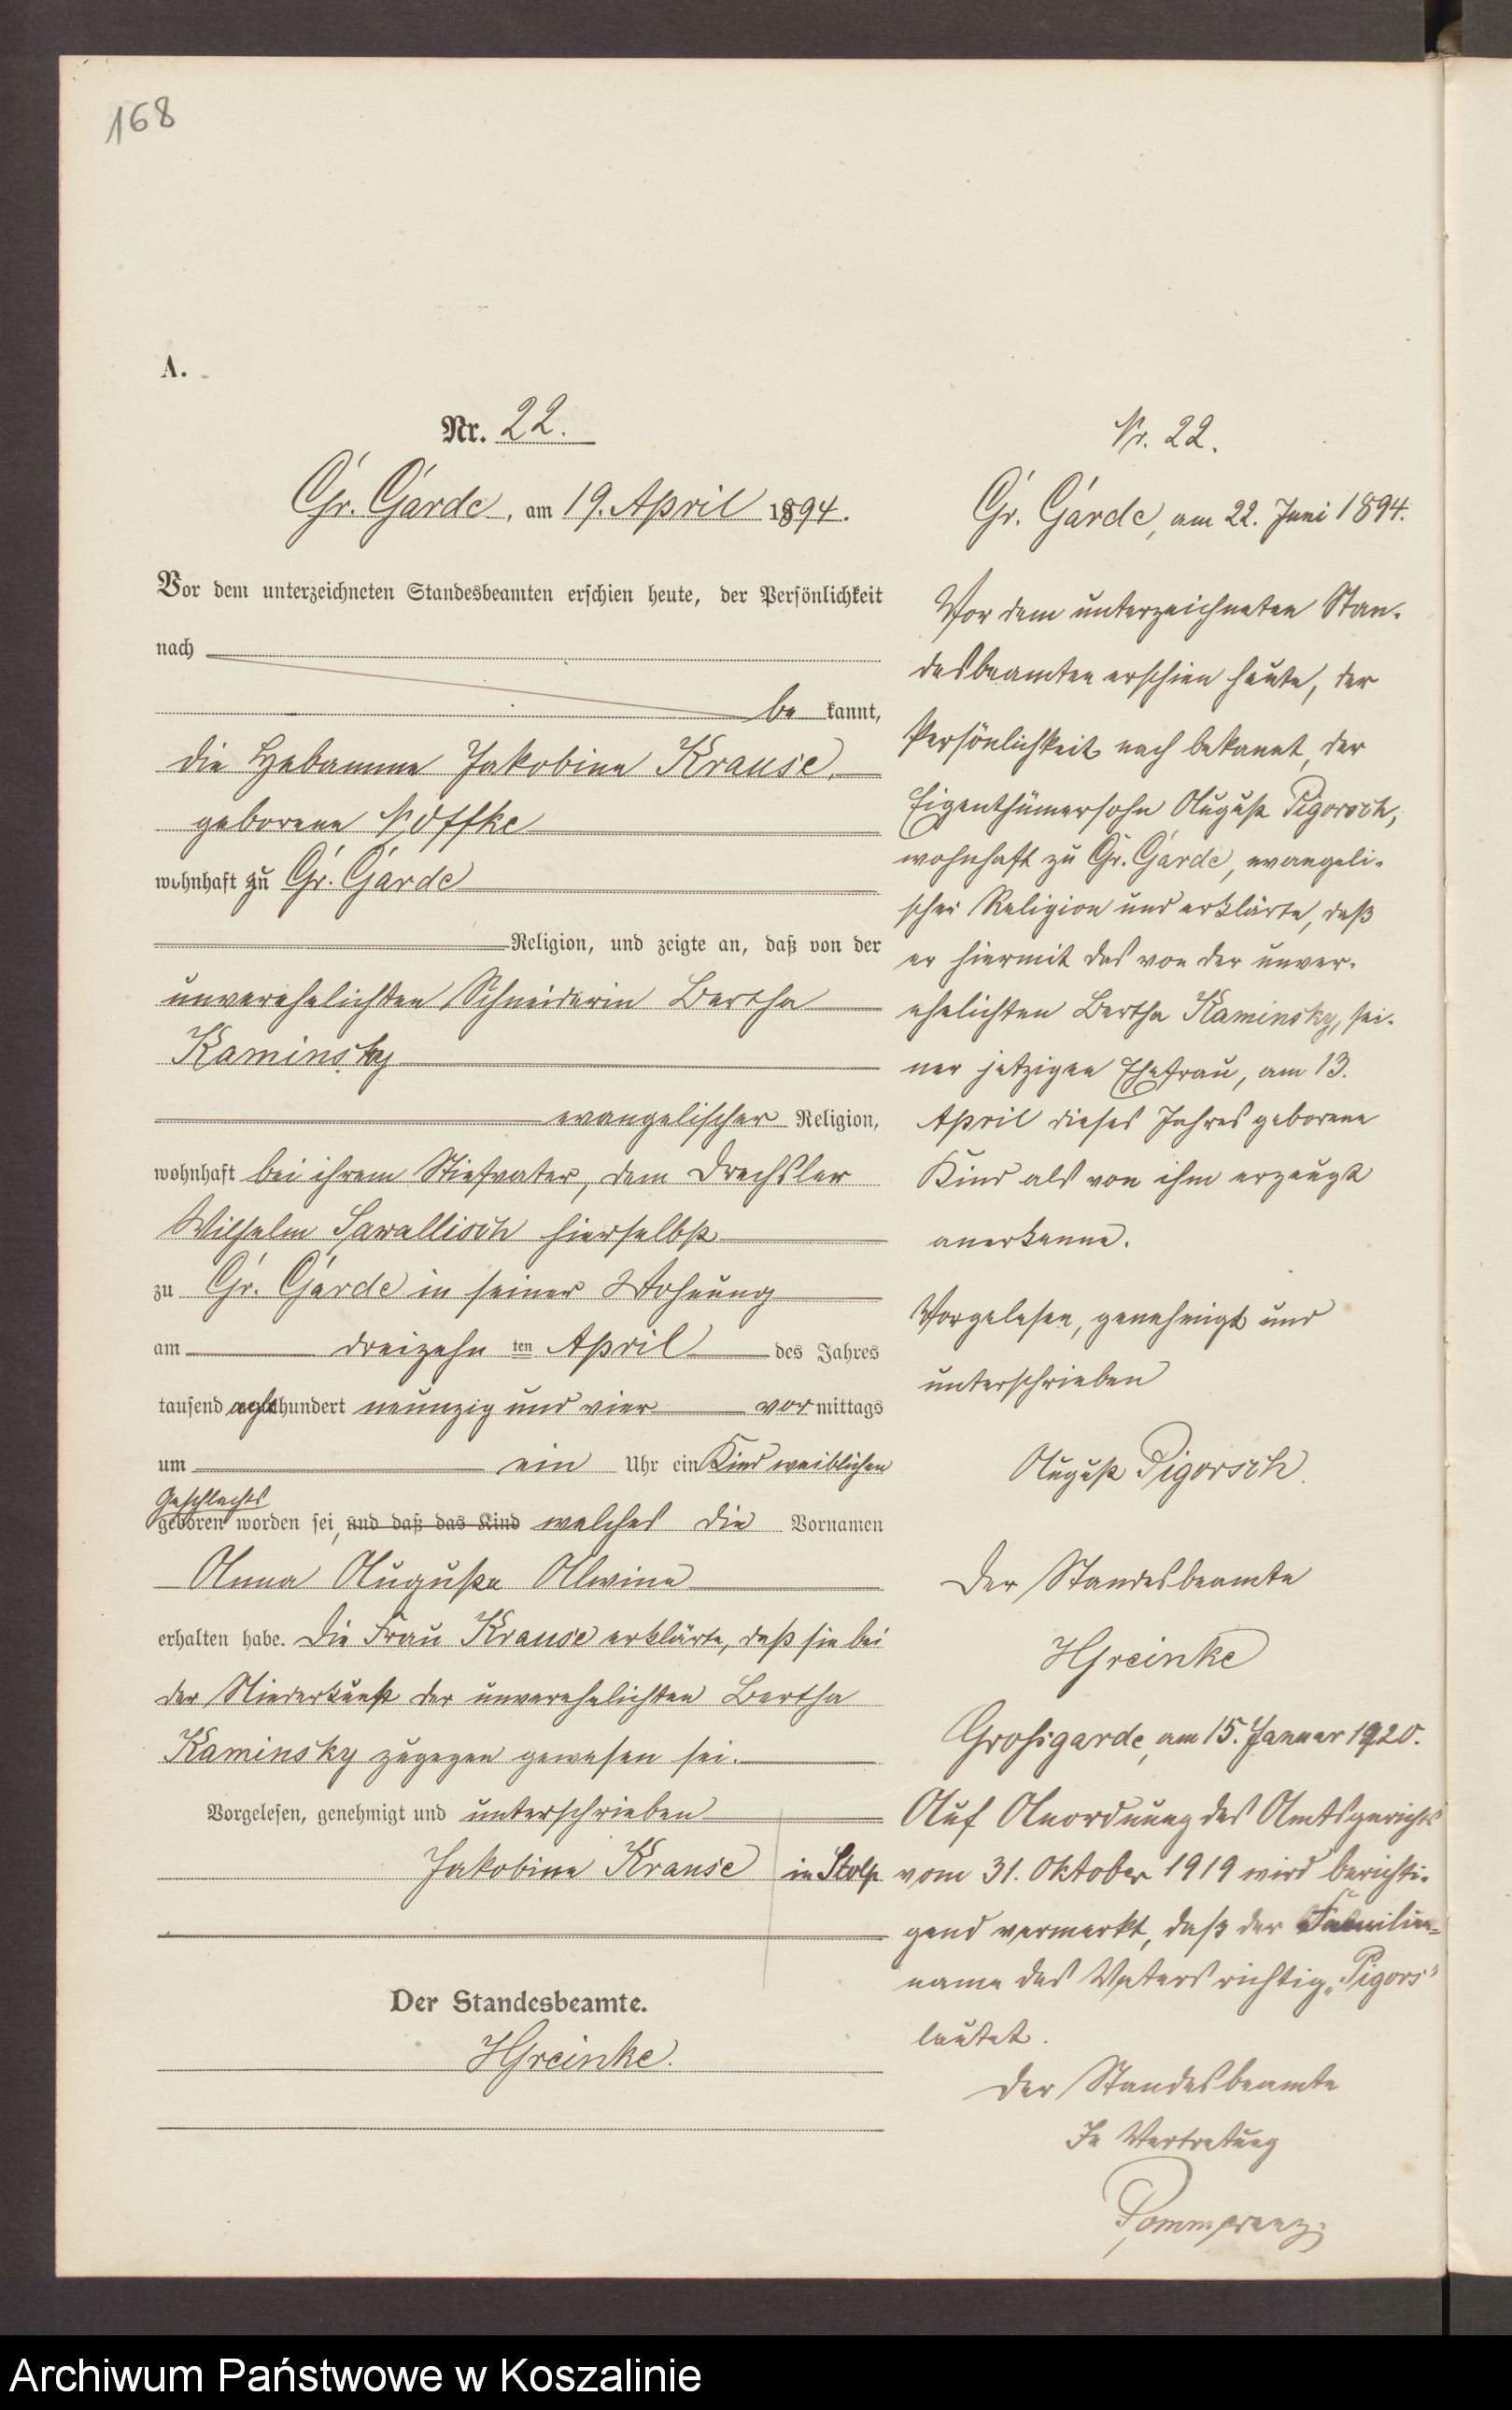 168
A.
Nr. 22.
Gr. Garde, am 19. April 1894.
Vor dem unterzeichneten Standesbeamten erschien heute, der Persönlichkeit
nach
be kannt,
die Hebamme Jakobine Krause,
geborene Noffke
wohnhaft zu Gr. Garde
Religion, und zeigte an, daß von der
unverehelichten Schneiderin Bertha
Kaminsky
evangelischer Religion,
wohnhaft bei ihrem Stiefvater, dem Drechsler
Wilhelm Sawallisch hierselbst
zu Gr. Garde in seiner Wohnung
am dreizehn ten April des Jahres
tausend acht hundert neunzig und vier vor mittags
um ein Uhr ein Kind weiblichen
Geschlechts
geboren worden sei, und daß das Kind welches die Vornamen
Anna Auguste Alwine
erhalten habe. Die Frau Krause erklärte, daß sie bei
der Niederkunft der unverehelichten Bertha
Kaminsky zugegen gewesen sei.
Vorgelesen, genehmigt und unterschrieben
Jakobine Krause
Der Standesbeamte.
HGreinke.
Nr. 22.
Gr. Garde, am 22. Juni 1894.
Vor dem unterzeichneten Stan-
desbeamten erschien heute, der
Persönlichkeit nach bekannt, der
Eigenthümersohn August Pigorsch,
wohnhaft zu Gr. Garde, evangeli-
scher Religion und erklärte, daß
er hiermit das von der unver-
ehelichten Bertha Kaminsky, sei-
ner jetzigen Ehefrau, am 13.
April dieses Jahres geborene
Kind als von ihm erzeugt
anerkenne.
Vorgelesen, genehmigt und
unterschrieben
August Pigorsch.
Der Standesbeamte
HGreinke
Großgarde, am 15. Januar 1920.
Auf Anordnung des Amtsgerichts
in Stolp vom 31. Oktober 1919 wird berichti-
gend vermerkt, daß der Familien-
name des Vaters richtig „Pigors"
lautet.
Der Standesbeamte
In Vertretung
Archiwum Państwowe w Koszalinie